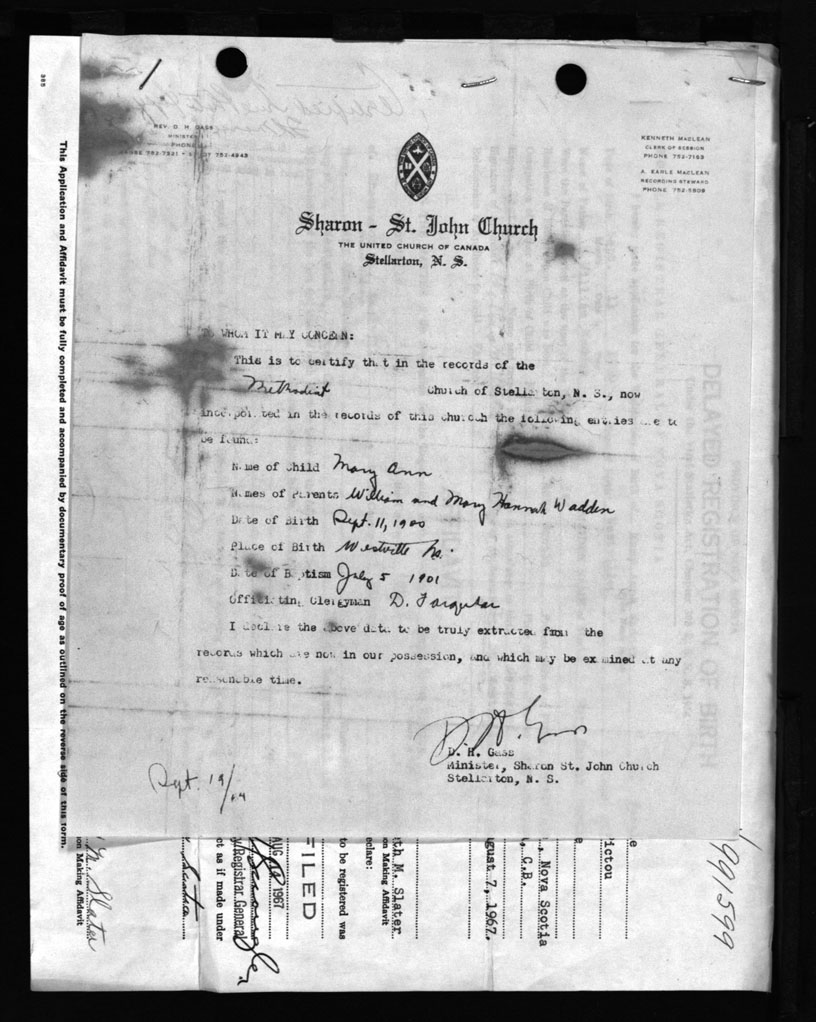 385
REV. D. H. GASS
MINISTER
PHONE
752-4943
KENNETH MACLEAN
CLERK OF SESSION
PHONE 752-7163
A. EARLE MACLEAN
RECORDING STEWARD
PHONE 752-5909
Sharon - St. John Church
THE UNITED CHURCH OF CANADA
Stellarton, N. S.
TO WHOM IT MAY CONCERN:
This is to certify that in the records of the
Methodist Church of Stellarton, N. S., now
incorporated in the records of this church the following entries are to
be found:
Name of Child Mary Ann
Names of Parents William and Mary Hannah Wadden
Date of Birth Sept. 11, 1900
Place of Birth Westville N.S.
Date of Baptism July 5 1901
Officiating Clergyman D. Farquhar
I declare the above data to be truly extracted from the
records which are now in our possession, and which may be examined at any
reasonable time.
D. H. Gass
D. H. Gass
Minister, Sharon St. John Church
Stellarton, N. S.
Sept. 19/64
This Application and Affidavit must be fully completed and accompanied by documentary proof of age as outlined on the reverse side of this form.
DELAYED REGISTRATION OF BIRTH
M. Slater
on Making Affidavit
ct as if made under
y/Registrar General
AUG 1967
FILED
to be registered was
eclare:
eth M. Slater
on Making Affidavit
ugust 7, 1967.
, C.B.
, Nova Scotia
Pictou
991599